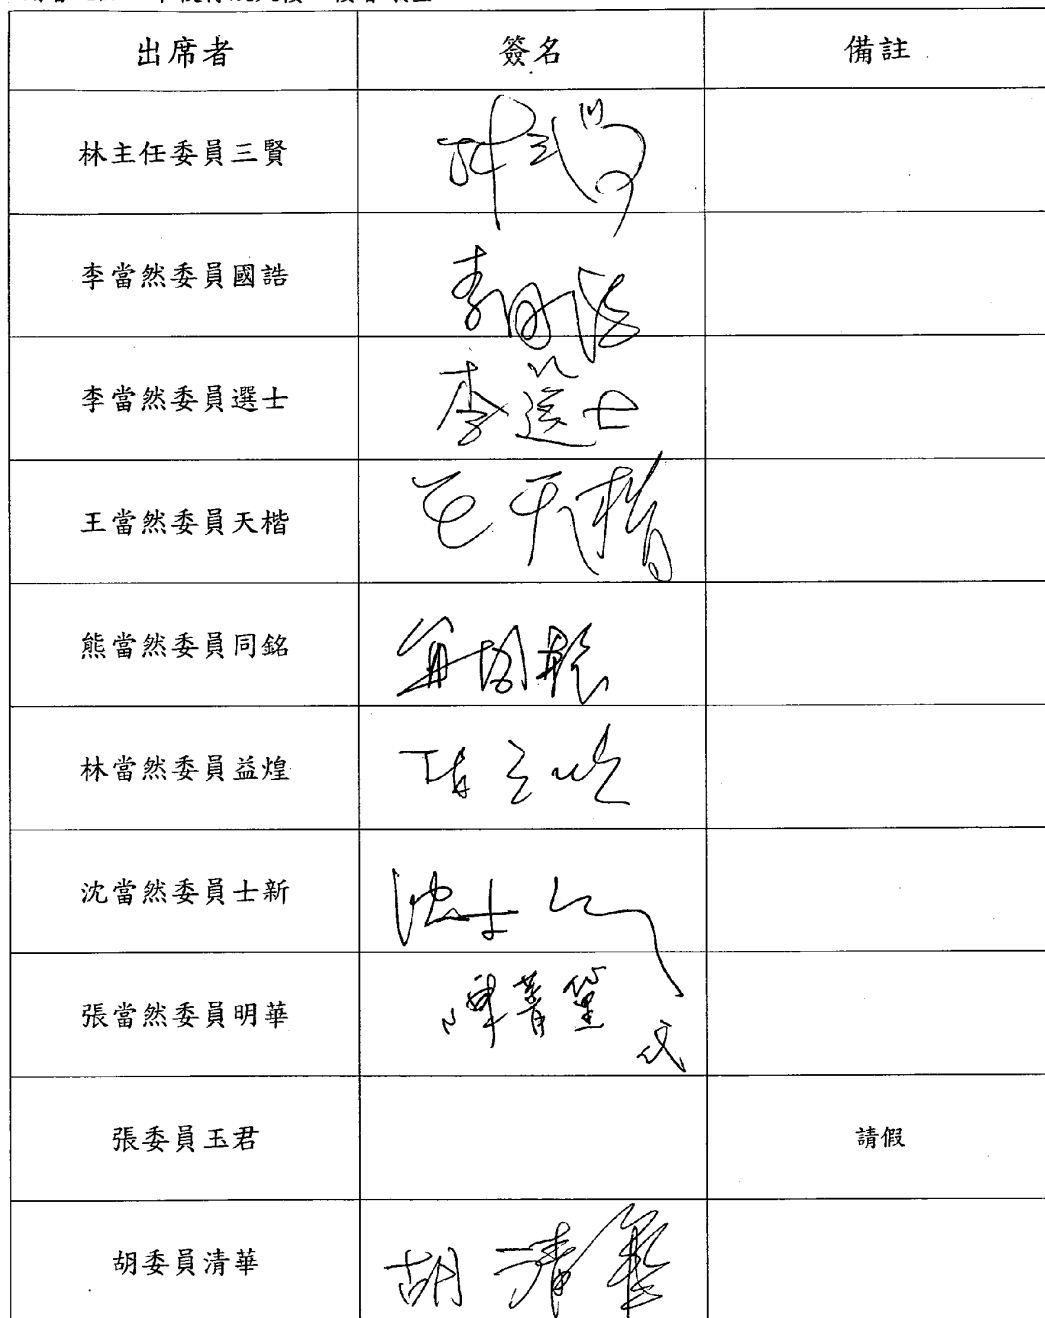 出席者 簽名 備註
林主任委員三賢
李當然委員國誥
李當然委員選士 李選士
王當然委員天楷 王天楷
熊當然委員同銘
林當然委員益煌
沈當然委員士新
張當然委員明華 陳菁篁 代
張委員玉君 請假
胡委員清華 胡清華